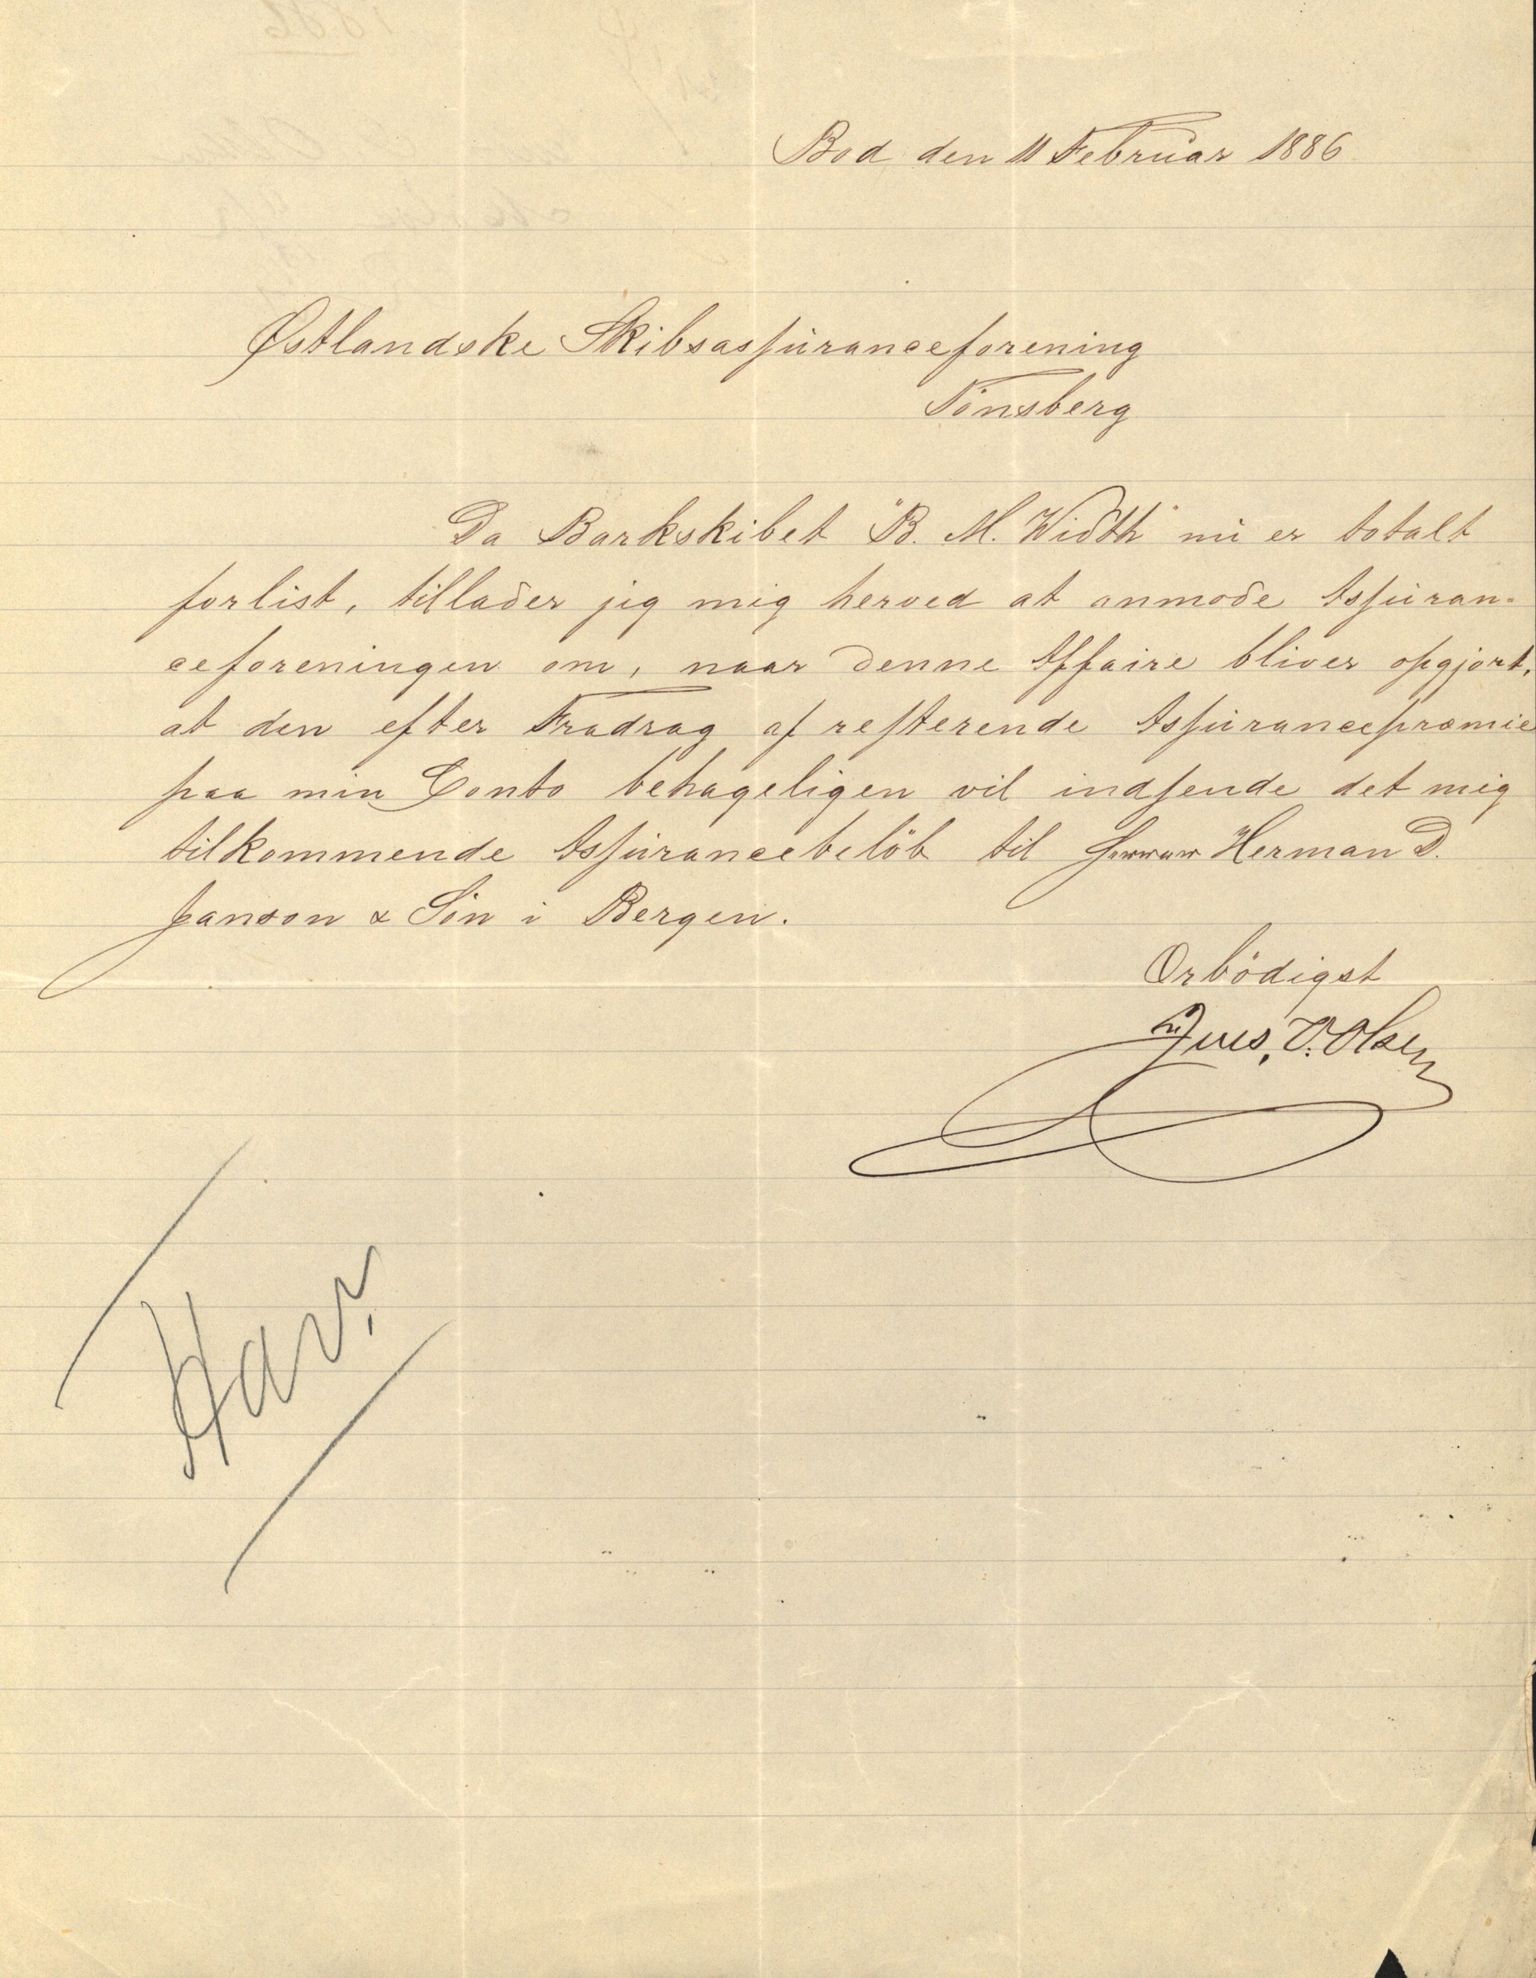 Bod den 11 Februar 1886
Østlandske Skibsassuranceforening
Tönsberg
Da Barkskibet "B. M. Width" nu er totalt
forlist, tillader jeg mig herved at anmode Assuran-
ceforeningen om, naar denne Affaire bliver opgjort,
at den efter Fradrag af resterende Assurancepræmie
paa min Conto behageligen vil indsende det mig
tilkommende Assurancebelöb til Herman D.
Janson & Sön i Bergen.
Ærbödigst
V. Olsen
Hav.